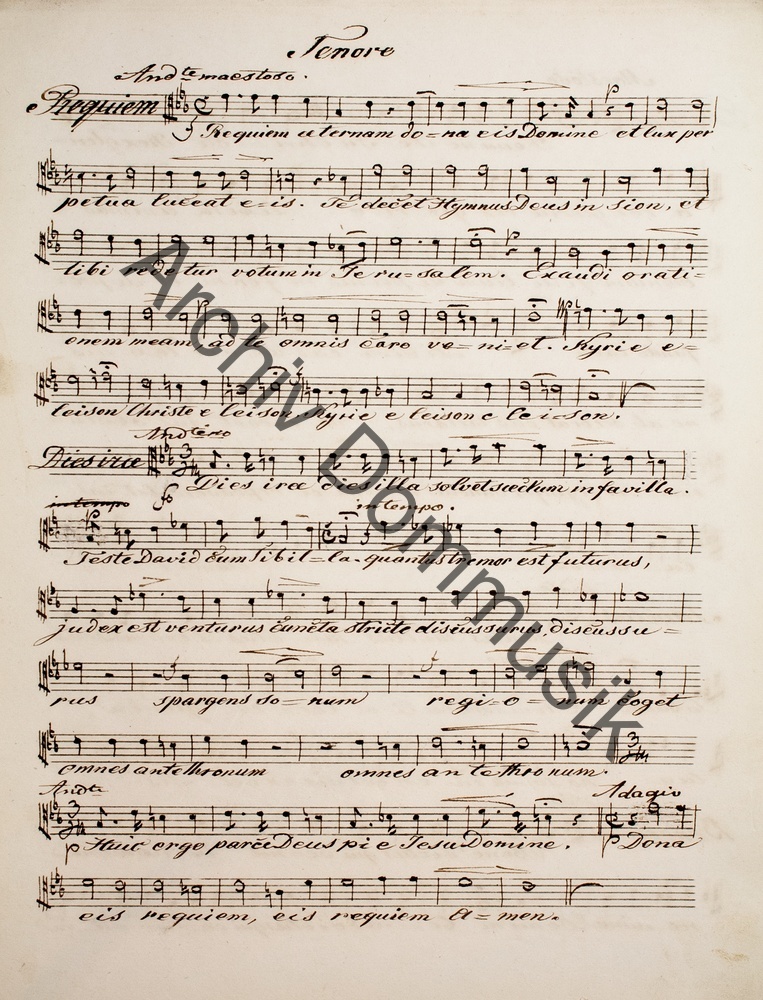 Tenore
And te maestoso.
Requiem
Requiem eternam do=na eis Domine et lux per
petua luceat e=is. Te decet Hymnus Deus in Sion, et
tibi redetur votum in Jeru=salem. Exaudi orati=
onem meam ad te omnis caro ve=ni=et. Kyrie e=
leison Christe eleison, Kyrie eleison e le i=son.
Dies irae
Dies irae dies illa solvet saeclum in favilla.
in tempo
in tempo.
Teste David cum Sibil=la. quantus tremor est futurus,
judex est venturus cuncta stricte discussurus, discussu=
rus spargens so=num regi=o=num coget
omnes ante thronum omnes an te thronum.
Andte
Adagio
Huic ergo parce Deus pie Jesu Domine. Dona
eis requiem, eis requiem A=men.
Archiv Dommusik